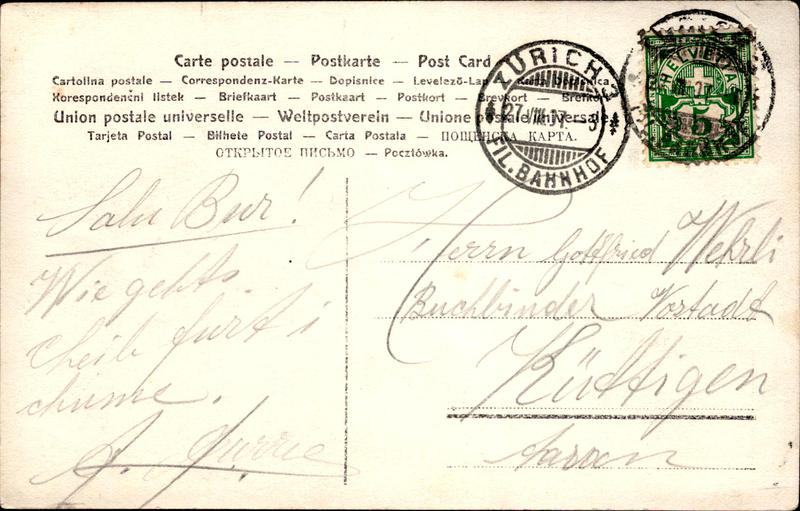 Carte postale — Postkarte — Post Card
Cartolina postale — Correspondenz-Karte — Dopisnice — Levelező-Lap
Korespondenční lístek — Briefkaart — Postkaart — Postkort — Brevkort — Brefkort
Union postale universelle — Weltpostverein — Unione postale universale
Tarjeta Postal — Bilhete Postal — Carta Postala — ПОЩЕНСКА КАРТА.
ОТКРЫТОЕ ПИСЬМО — Pocztówka.
ZÜRICH 3
27. VIII. 07.
FIL. BAHNHOF
5
Salu Bur!
Wie gehts.
cheib furt i
chume.
Herrn Gottfried Wehrli
Buchbinder Vorstadt
Küttigen